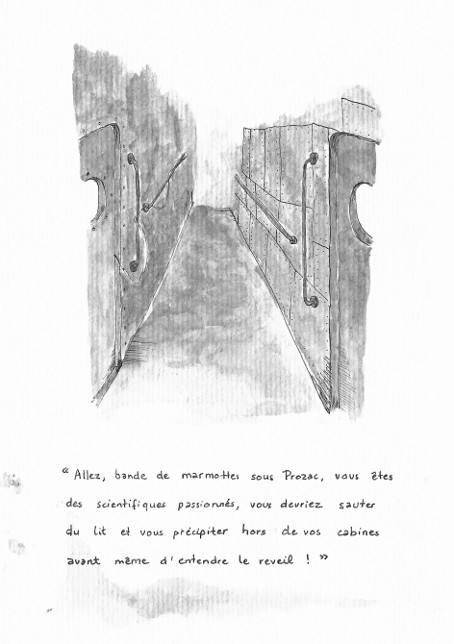 “ Allez, bande de marmottes sous Prozac, vous êtes
des scientifiques passionnés, vous devriez sauter
du lit et vous précipiter hors de vos cabines
avant même d'entendre le reveil ! ”